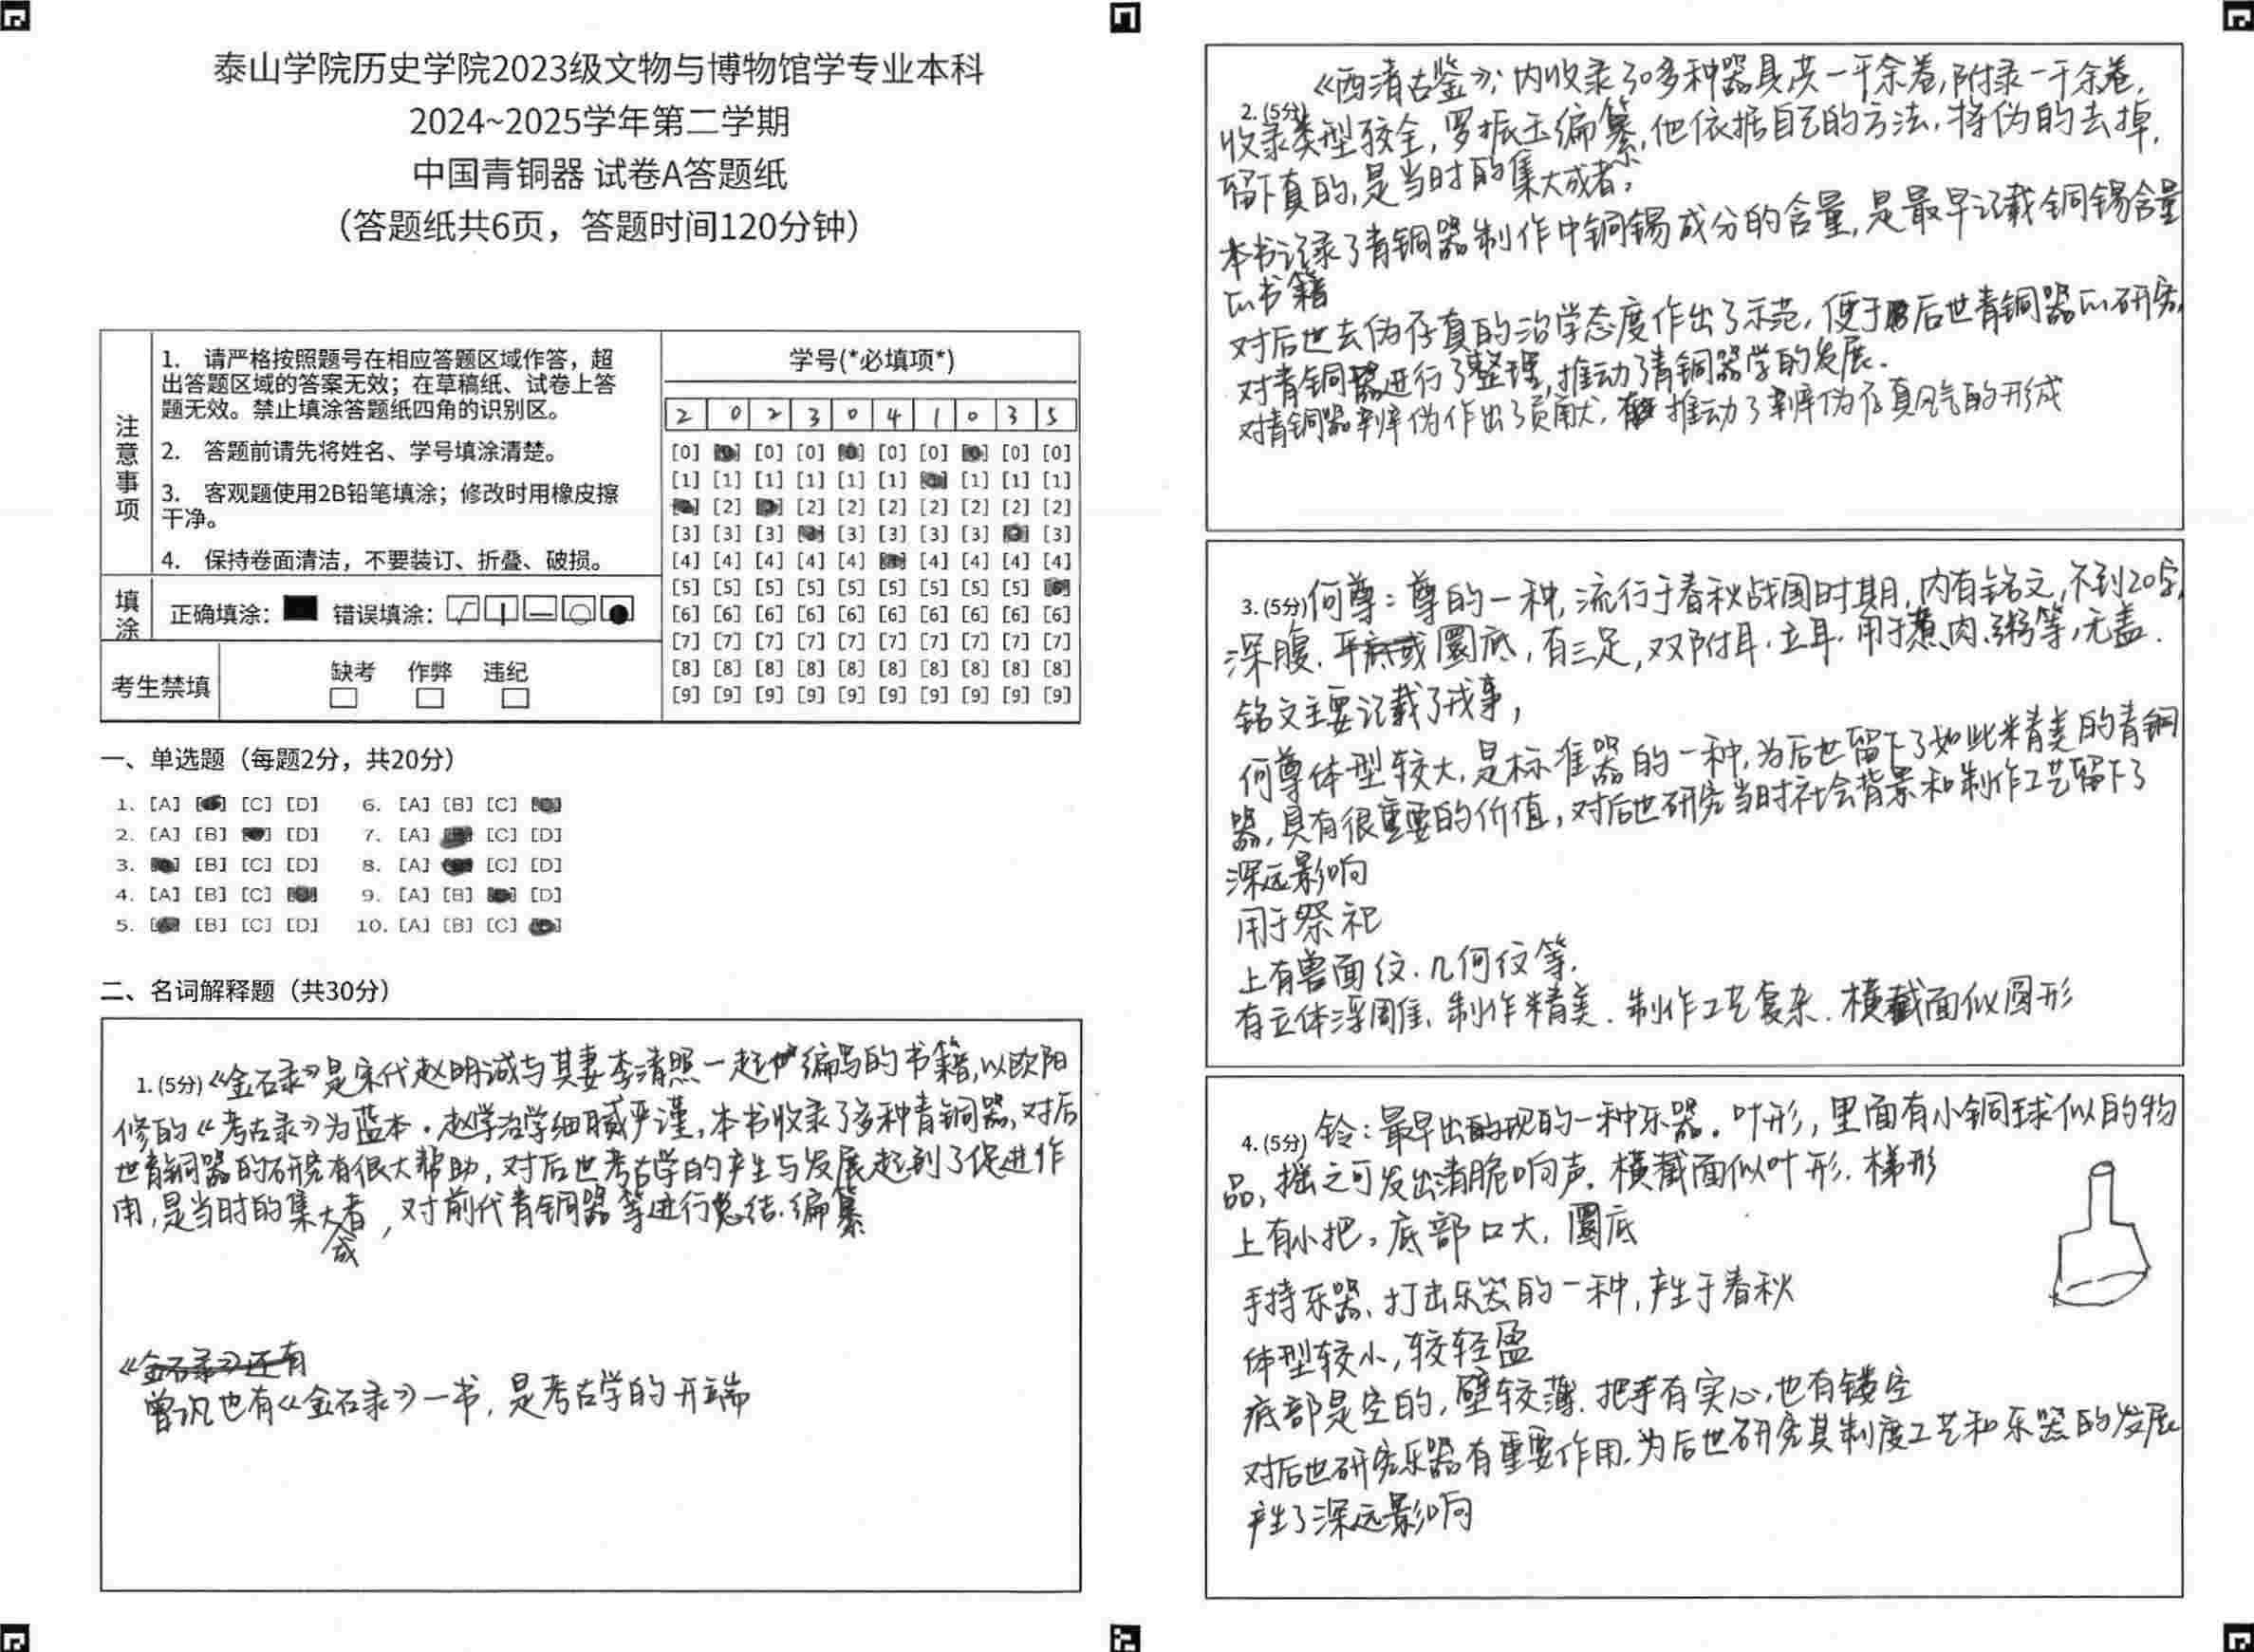 泰山学院历史学院2023级文物与博物馆学专业本科
2024~2025学年第二学期
中国青铜器 试卷A答题纸
（答题纸共6页，答题时间120分钟）
注意事项
1. 请严格按照题号在相应答题区域作答，超
出答题区域的答案无效；在草稿纸、试卷上答
题无效。禁止填涂答题纸四角的识别区。
2. 答题前请先将姓名、学号填涂清楚。
3. 客观题使用2B铅笔填涂；修改时用橡皮擦
干净。
4. 保持卷面清洁，不要装订、折叠、破损。
填涂 正确填涂： 错误填涂：
考生禁填 缺考 作弊 违纪
学号(*必填项*)
2 0 2 3 0 4 1 0 3 5
[0] [0] [0] [0] [0] [0] [0] [0]
[1] [1] [1] [1] [1] [1] [1] [1] [1]
[2] [2] [2] [2] [2] [2] [2] [2]
[3] [3] [3] [3] [3] [3] [3] [3]
[4] [4] [4] [4] [4] [4] [4] [4] [4]
[5] [5] [5] [5] [5] [5] [5] [5] [5]
[6] [6] [6] [6] [6] [6] [6] [6] [6] [6]
[7] [7] [7] [7] [7] [7] [7] [7] [7] [7]
[8] [8] [8] [8] [8] [8] [8] [8] [8] [8]
[9] [9] [9] [9] [9] [9] [9] [9] [9] [9]
一、单选题（每题2分，共20分）
1. [A] [C] [D] 6. [A] [B] [C]
2. [A] [B] [D] 7. [A] [C] [D]
3. [B] [C] [D] 8. [A] [C] [D]
4. [A] [B] [C] 9. [A] [B] [D]
5. [B] [C] [D] 10. [A] [B] [C]
二、名词解释题（共30分）
1.(5分)《金石录》是宋代赵明诚与其妻李清照一起编写的书籍，以欧阳
修的《考古录》为蓝本。赵学治学细腻严谨，本书收录了多种青铜器，对后
世青铜器的研究有很大帮助，对后世考古学的产生与发展起到了促进作
用，是当时的集大成者，对前代青铜器等进行总结、编纂
《金石录》还有
曾巩也有《金石录》一书，是考古学的开端
《西清古鉴》：内收录30多种器具共一千余卷，附录一千余卷，
2.(5分)
收录类型较全，罗振玉编纂，他依据自己的方法，将伪的去掉，
留下真的，是当时的集大成者，
本书记录了青铜器制作中铜锡成分的含量，是最早记载铜锡含量
的书籍
对后世去伪存真的治学态度作出了示范，便于后世青铜器的研究，
对青铜器进行了整理，推动了青铜器学的发展.
对青铜器辨伪作出了贡献，推动了辨伪存真风气的形成
3.(5分)何尊：尊的一种，流行于春秋战国时期，内有铭文，不到20字，
深腹、平底或圜底，有三足，双附耳、立耳、用于煮肉、粥等，无盖.
铭文主要记载了戎事，
何尊体型较大，是标准器的一种，为后世留下了如此精美的青铜
器，具有很重要的价值，对后世研究当时社会背景和制作工艺留下了
深远影响
用于祭祀
上有兽面纹、几何纹等.
有立体浮雕、制作精美、制作工艺复杂、横截面似圆形
4.(5分) 铃：最早出现的一种乐器。叶形，里面有小铜球似的物
品，摇之可发出清脆响声、横截面似叶形、梯形
上有小把，底部口大，圜底
手持乐器、打击乐器的一种，产生于春秋
体型较小，较轻盈
底部是空的，壁较薄、把手有实心，也有镂空
对后世研究乐器有重要作用，为后世研究其制度工艺和乐器的发展
产生了深远影响